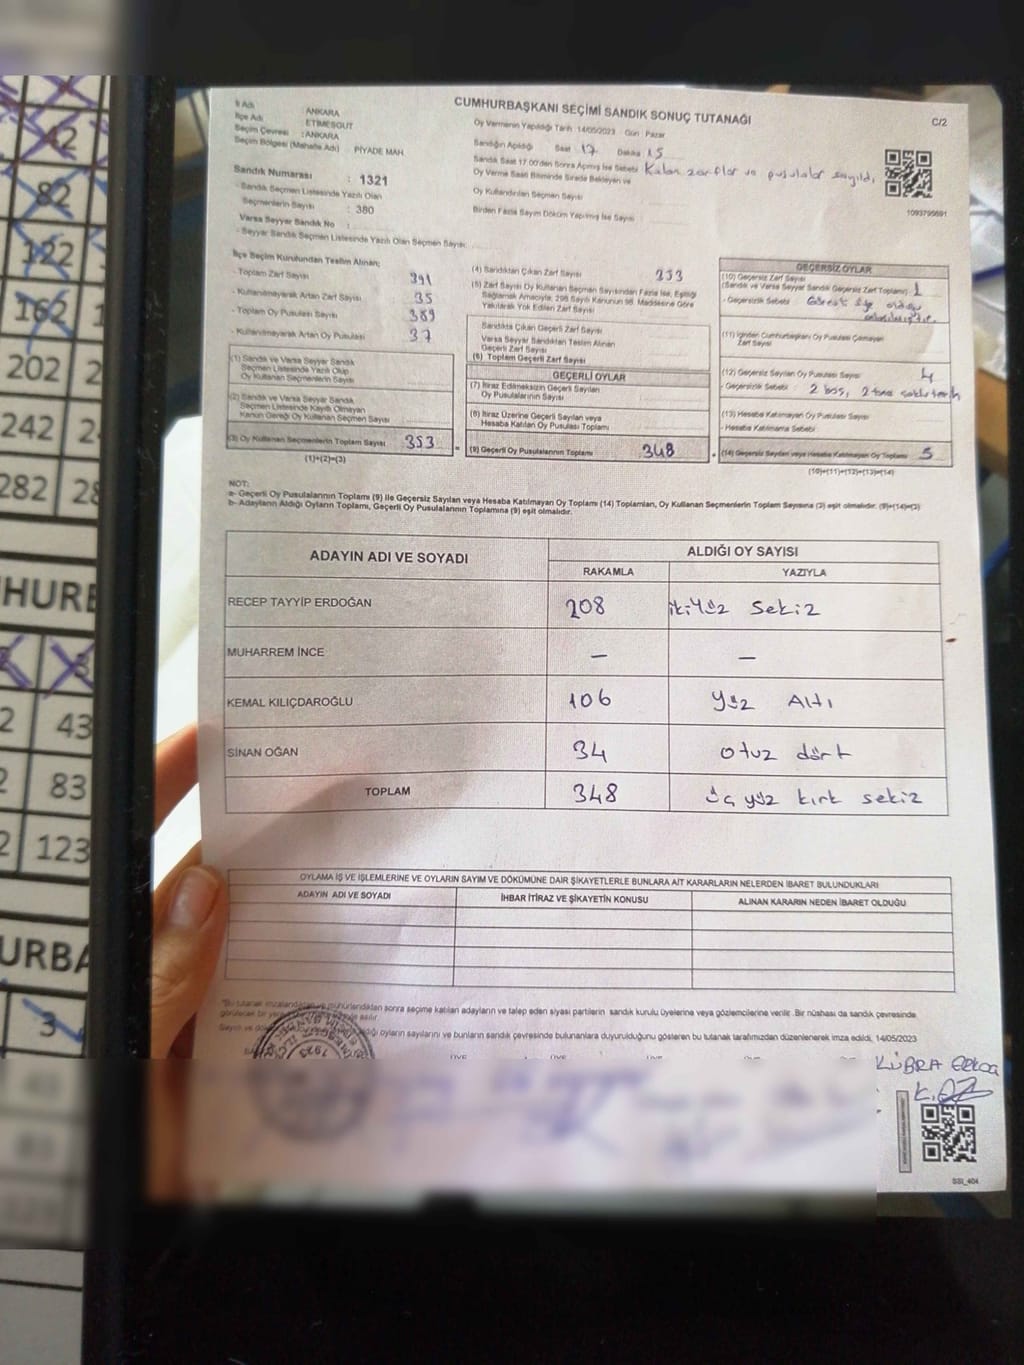 CUMHURBAŞKANI SEÇİMİ SANDIK SONUÇ TUTANAĞI
C/2
İl Adı : ANKARA
İlçe Adı : ETİMESGUT
Seçim Çevresi : ANKARA
Seçim Bölgesi (Mahalle Adı) PİYADE MAH.
Sandık Numarası : 1321
- Sandık Seçmen Listesinde Yazılı Olan
Seçmenlerin Sayısı : 380
Varsa Seyyar Sandık No :
- Seyyar Sandık Seçmen Listesinde Yazılı Olan Seçmen Sayısı:
Oy Vermenin Yapıldığı Tarih :14/05/2023 Gün : Pazar
Sandığın Açıldığı Saat 17 Dakika 15
Sandık Saat 17.00'den Sonra Açılmış İse Sebebi Kalan zarflar ve pusulalar sayıldı.
Oy Verme Saati Bitiminde Sırada Bekleyen ve
Oy Kullandırılan Seçmen Sayısı
Birden Fazla Sayım Döküm Yapılmış İse Sayısı
1093795691
İlçe Seçim Kurulundan Teslim Alınan;
- Toplam Zarf Sayısı 391
- Kullanılmayarak Artan Zarf Sayısı 35
- Toplam Oy Pusulası Sayısı 389
- Kullanılmayarak Artan Oy Pusulası 37
(1) Sandık ve Varsa Seyyar Sandık
Seçmen Listesinde Yazılı Olup
Oy Kullanan Seçmenlerin Sayısı
(2) Sandık ve Varsa Seyyar Sandık
Seçmen Listesinde Kayıtlı Olmayan
Kanun Gereği Oy Kullanan Seçmen Sayısı
(3) Oy Kullanan Seçmenlerin Toplam Sayısı 353
(1)+(2)=(3)
(4) Sandıktan Çıkan Zarf Sayısı 353
(5) Zarf Sayısı Oy Kullanan Seçmen Sayısından Fazla İse, Eşitliği
Sağlamak Amacıyla; 298 Sayılı Kanunun 98. Maddesine Göre
Yakılarak Yok Edilen Zarf Sayısı
Sandıkta Çıkan Geçerli Zarf Sayısı
Varsa Seyyar Sandıktan Teslim Alınan
Geçerli Zarf Sayısı
(6) Toplam Geçerli Zarf Sayısı
GEÇERLİ OYLAR
(7) İtiraz Edilmeksizin Geçerli Sayılan
Oy Pusulalarının Sayısı
(8) İtiraz Üzerine Geçerli Sayılan veya
Hesaba Katılan Oy Pusulası Toplamı
(9) Geçerli Oy Pusulalarının Toplamı 348
GEÇERSİZ OYLAR
(10) Geçersiz Zarf Sayısı
(Sandık ve Varsa Seyyar Sandık Geçersiz Zarf Toplamı) 1
- Geçersizlik Sebebi
(11) İçinden Cumhurbaşkanı Oy Pusulası Çıkmayan
Zarf Sayısı
(12) Geçersiz Sayılan Oy Pusulası Sayısı 4
- Geçersizlik Sebebi : 2 boş, 2 tane
(13) Hesaba Katılmayan Oy Pusulası Sayısı
- Hesaba Katılmama Sebebi
(14) Geçersiz Sayılan veya Hesaba Katılmayan Oy Toplamı 5
(10)+(11)+(12)+(13)=(14)
NOT:
a- Geçerli Oy Pusulalarının Toplamı (9) ile Geçersiz Sayılan veya Hesaba Katılmayan Oy Toplamı (14) Toplamları, Oy Kullanan Seçmenlerin Toplam Sayısına (3) eşit olmalıdır. (9)+(14)=(3)
b- Adayların Aldığı Oyların Toplamı, Geçerli Oy Pusulalarının Toplamına (9) eşit olmalıdır.
ADAYIN ADI VE SOYADI
ALDIĞI OY SAYISI
RAKAMLA YAZIYLA
RECEP TAYYİP ERDOĞAN 208 ikiYüz Sekiz
MUHARREM İNCE — —
KEMAL KILIÇDAROĞLU 106 Yüz Altı
SİNAN OĞAN 34 otuz dört
TOPLAM 348 üç yüz kırk sekiz
OYLAMA İŞ VE İŞLEMLERİNE VE OYLARIN SAYIM VE DÖKÜMÜNE DAİR ŞİKAYETLERLE BUNLARA AİT KARARLARIN NELERDEN İBARET BULUNDUKLARI
ADAYIN ADI VE SOYADI İHBAR İTİRAZ VE ŞİKAYETİN KONUSU ALINAN KARARIN NEDEN İBARET OLDUĞU
"Bu tutanak imzalandıktan ve mühürlendikten sonra seçime katılan adayların ve talep eden siyasi partilerin sandık kurulu üyelerine veya gözlemcilerine verilir. Bir nüshası da sandık çevresinde
görülecek bir yere asılır.
oyların sayılarını ve bunların sandık çevresinde bulunanlara duyurulduğunu gösteren bu tutanak tarafımızdan düzenlenerek imza edildi, 14/05/2023
1923
KÜBRA
SSI_404
42
82
122
162 1
202 2
242 2
282 28
HURB
3
2 43
2 83
2 123
URBA
3